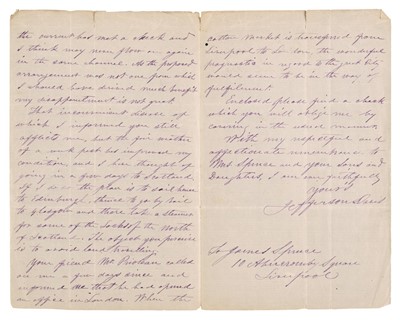 the current has not a check and
I think may even flow on again
in the same channel. As the proposed
arrangement was not one from which
I should have derived much benefit
my disappointment is not great.
That inconvenient disease of
which I informed you still
affects me, but the fine weather
of a week past has improved my
condition, and I have thought of
going in a few days to Scotland
if I do so the plan is to sail hence
to Edinburg, thence to go by rail
to Glasgow and there take a steamer
for some of the Lochs of the North
of Scotland. The object you perceive
is to avoid land travelling.
Your friend Mr. called
on me a few days since and
informed me that he had opened
an office in London. When the
cotton market is transferred from
Liverpool to London the wonderful
in regard to the great City
would seem to be in the way of
fulfilment.
Enclosed please find a check
which you will oblige me by
in the usual manner.
With my respectful and
affectionate remembrance to
Mrs. Spence and your Sons and
Daughters, I am ever faithfully
Yours
Jefferson Davis
To James Spence
10 Abercromby Square
Liverpool